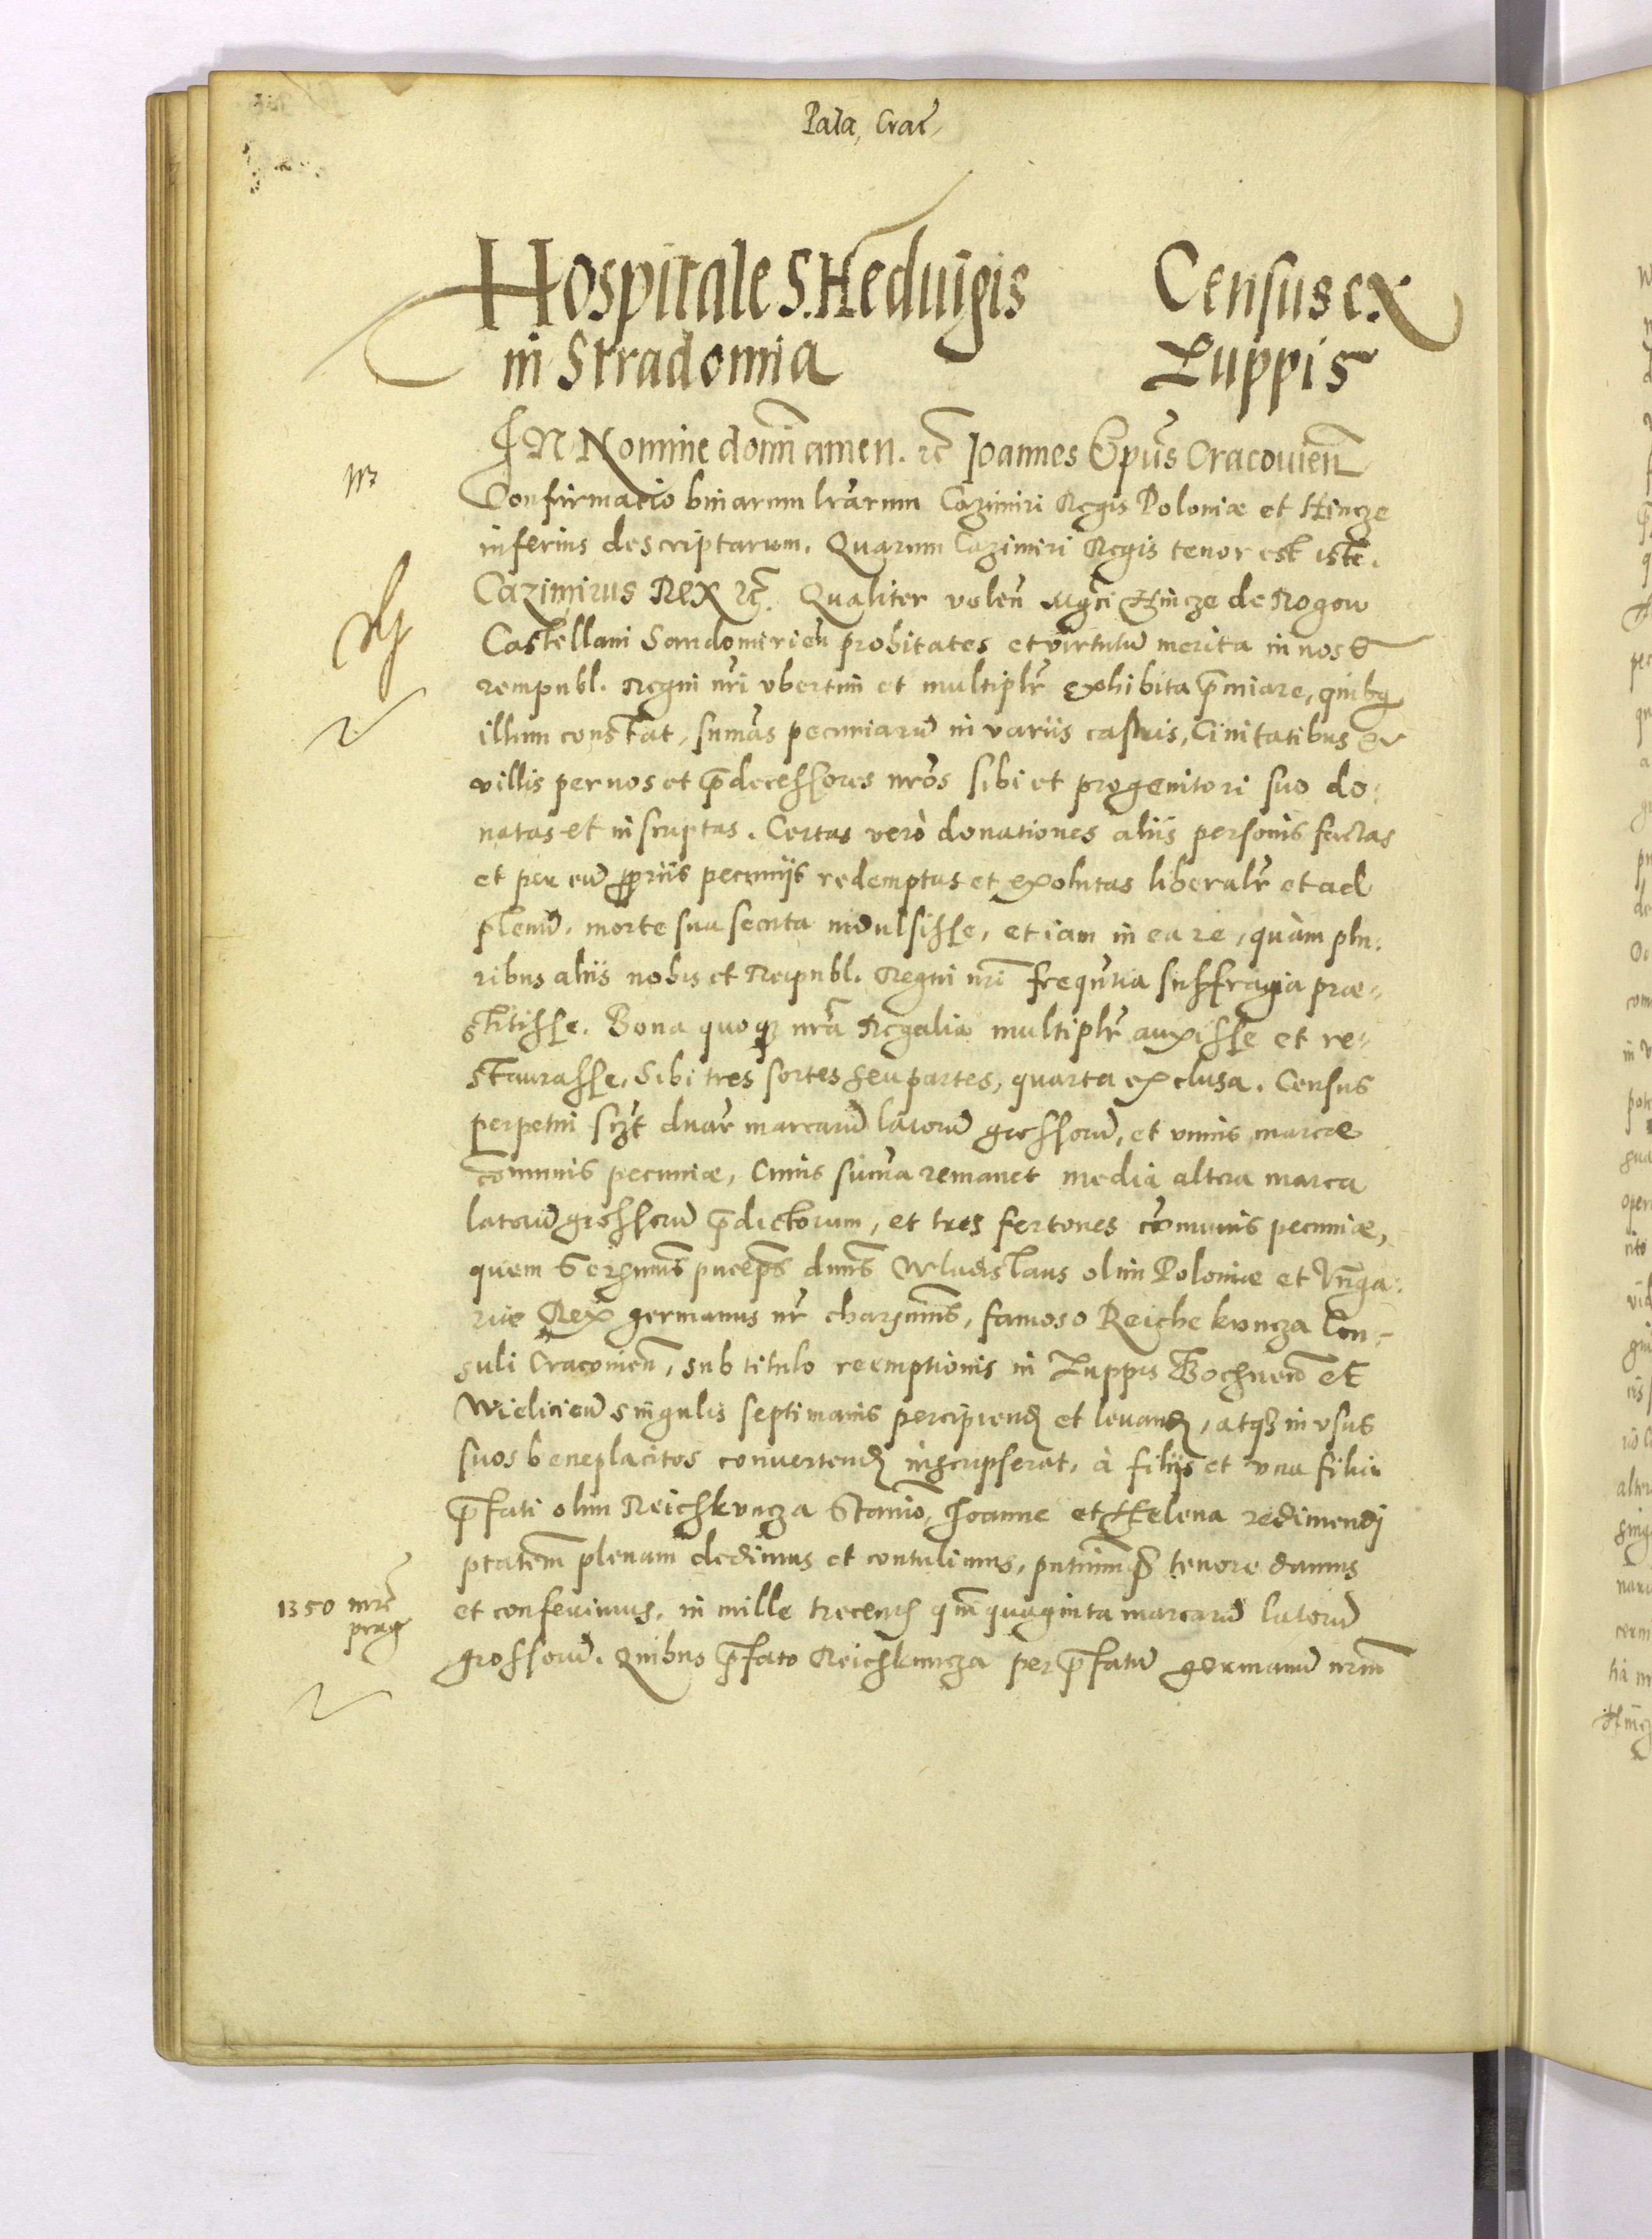 Pala, Crac̄
Hospitale S. Heduigis Census ex
in Stradomia Zuppis
IN Nomine domĩ amen. ꝛc̃ Joannes Ep̃us Cracouien̄
Confirmatio binarum lr̃arum Cazimiri Regis Poloniæ et Hincze
inferius descriptarum. Quarum Cazimiri Regis tenor est iste.
Cazimirus Rex ꝛc̃. Qualiter volen̄ Mg̃ci Hincze de Rogow
Castellani Sandomirien̄ probitates et virtutũ merita in nos &
rempubl. Regni nr̃i vbertim et multiplr̃ exhibita p̃miare, quibq
illum constat, sum̃as pecuniarũ in variis castris, Ciuitatibus et
villis per nos et p̃decessores nr̃os sibi et progenitori suo do:
natas et inscriptas. Certas verò donationes aliis personis factas
et per eũ ꝓpriis pecunijs redemptas et exolutas liberalr̃ et ad
plenũ, morte sua secuta indulsisse, etiam in ea re, quàm plu:
ribus aliis nobis et Reipubl. Regni nr̃i freque͂tia suffragia præ=
stitisse. Bona quoqꝫ nr̃a Regalia multiplr̃ auxisse et re=
staurasse. Sibi tres sortes seu partes, quarta exclusa. Census
perpetui sc̃t duar̃ marcarũ latorũ grossorũ, et vnius marcæ
com̃unis pecuniæ, Cuius sum̃a remanet media altera marca
latorũ grossorũ p̃dictorum, et tres fertones com̃unis pecuniæ,
quem Serenim̃us princeps dom̃s Wladislaus olim Poloniæ et Vn̄ga:
riæ Rex germanus nr̃ charissim̃s, famoso Reiche kuncza Con=
suli Cracouien̄, sub titulo reemptionis in Zuppis Bochnen̄ et
Wielicien̄ singulis septimanis percipiend et leuand, atqꝫ in vsus
suos beneplacitos conuertend inscripserat, à filijs et vna filia
p̃fati olim Reichkuncza Stanio, Joanne et Helena redimendi
ptatem̃ plenam dedimus et contulimus, pñtiumqꝫ tenore damus
1350 mrc̃ et conferimus, in mille trecentis quinquaginta marcarũ latorũ
prag
grossorũ. Quibus p̃fato Reichkuncza per p̃fatũ germanũ nr̃m